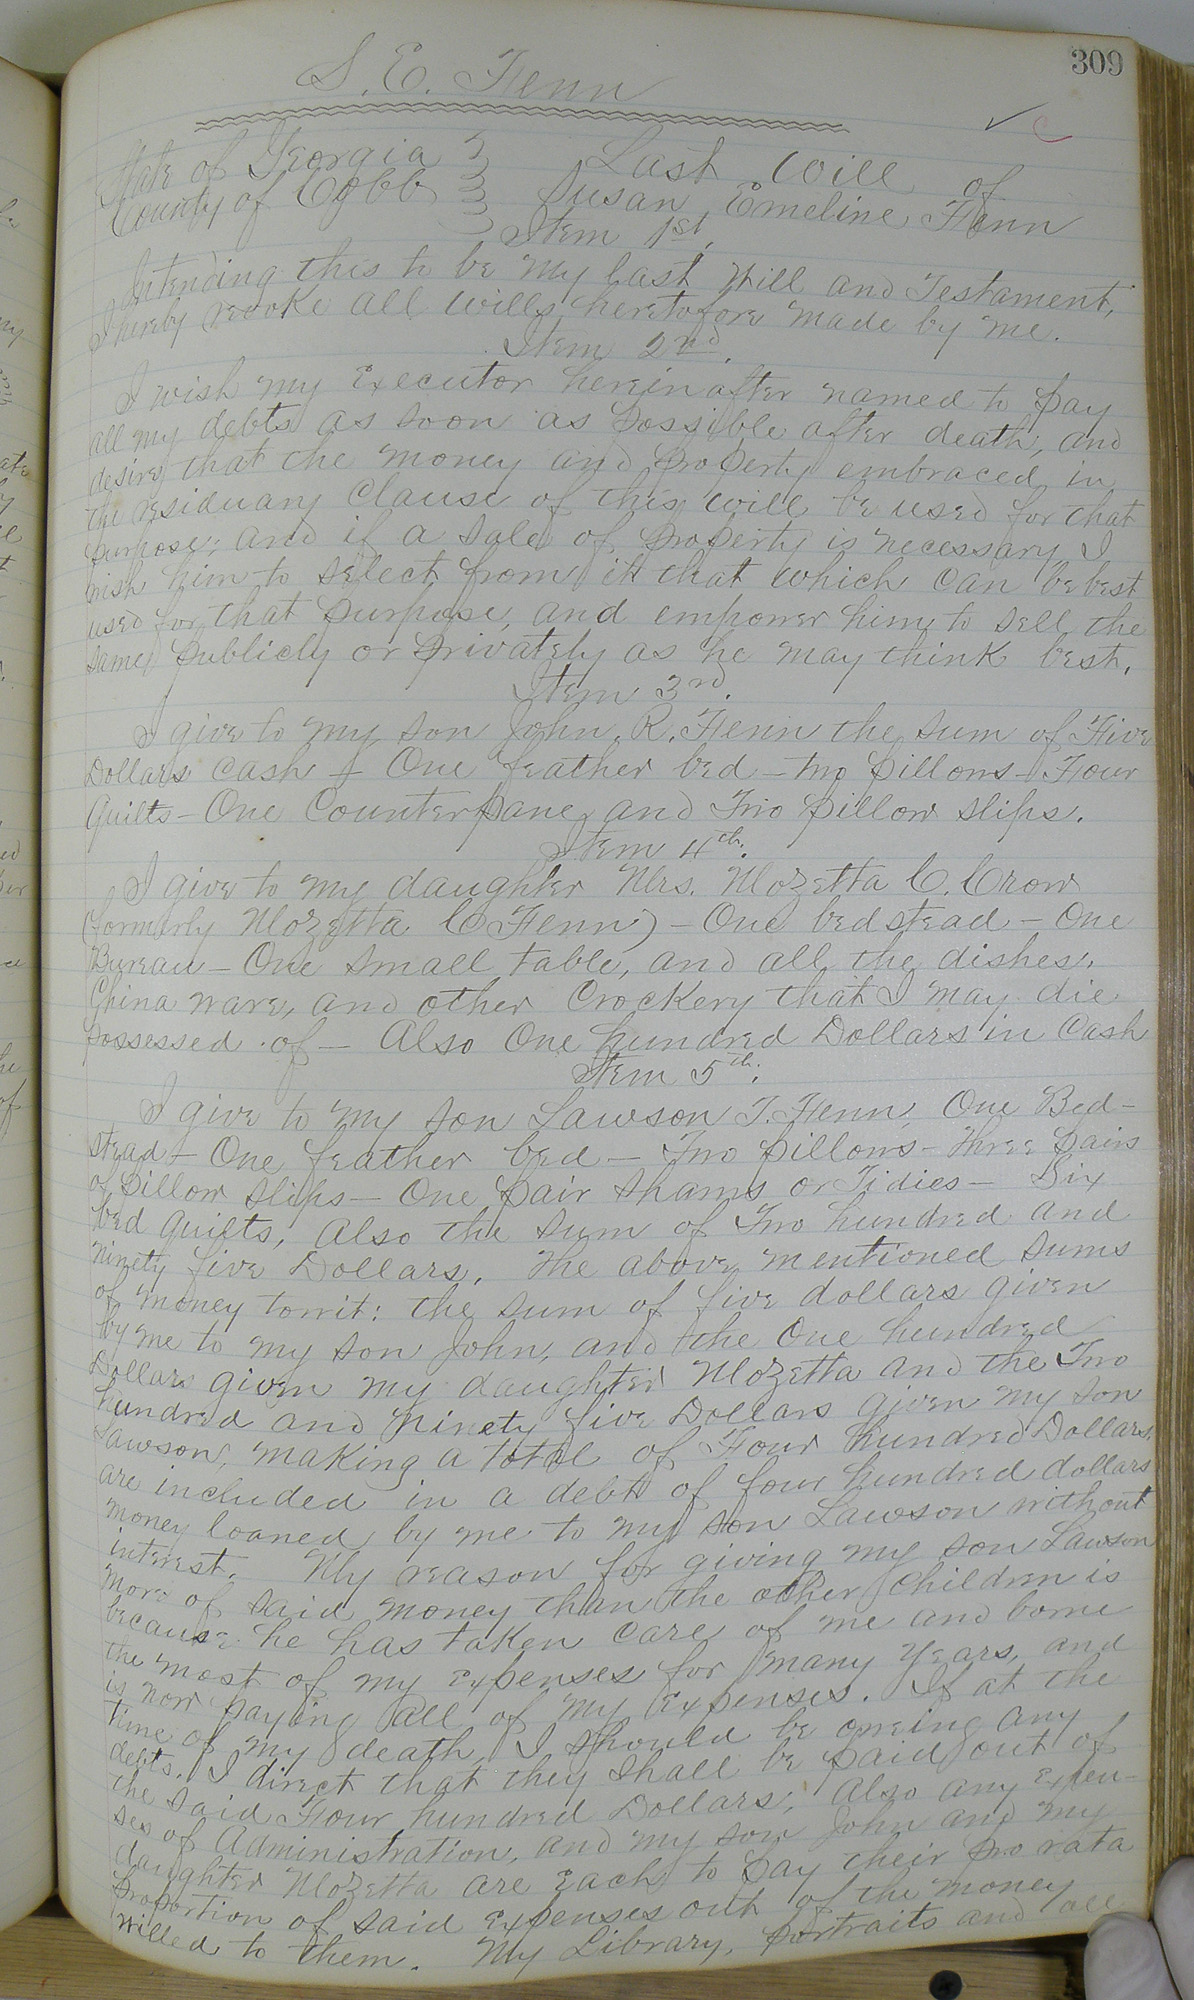 309
S. E. Fenn
State of Georgia } Last Will of
County of Cobb } Susan Emeline Fenn
Item 1st.
Intending this to be my last Will and Testament,
I hereby revoke all wills heretofore made by me.
Item 2nd.
I wish my Executor hereinafter named to pay
all my debts as soon as possible after death, and
desire that the money and property embraced in
the residuary clause of this will be used for that
purpose; and if a sale of property is necessary I
wish him to select from it that which can be best
used for that purpose, and empower him to sell the
same publicly or privately as he may think best.
Item 3rd.
I give to my son John. R. Fenn the sum of Five
Dollars cash - One feather bed - two pillows - Four
Quilts - One Counterpane, and Two pillow slips.
Item 4th.
I give to my daughter Mrs. Mozetta C. Crow
(formerly Mozetta C Fenn) - One bedstead - One
Bureau - One small table, and all the dishes,
China ware, and other Crockery that I may die
possessed of - Also One hundred Dollars in Cash
Item 5th.
I give to my son Lawson T. Fenn, One Bed-
stead - One feather bed - Two pillows - three pairs
of pillow slips - One pair shams or Tidies - Six
bed quilts, Also the sum of Two hundred and
ninety five Dollars. The above mentioned sums
of money towit: the sum of five dollars given
by me to my son John, and the One hundred
Dollars given my daughter Mozetta and the Two
hundred and ninety five Dollars given my son
Lawson, making a total of Four hundred Dollars,
are included in a debt of four hundred dollars
money loaned by me to my son Lawson without
interest. My reason for giving my son Lawson
more of said money than the other children is
because he has taken care of me and borne
the most of my expenses for many years, and
is now paying all of my expenses. If at the
time of my death I should be oweing any
debts, I direct that they shall be paid out of
the said Four hundred Dollars; Also any expen-
ses of Administration, and my son John and my
daughter Mozetta are each to pay their pro rata
proportion of said expenses out of the money
willed to them. My Library, portraits and all